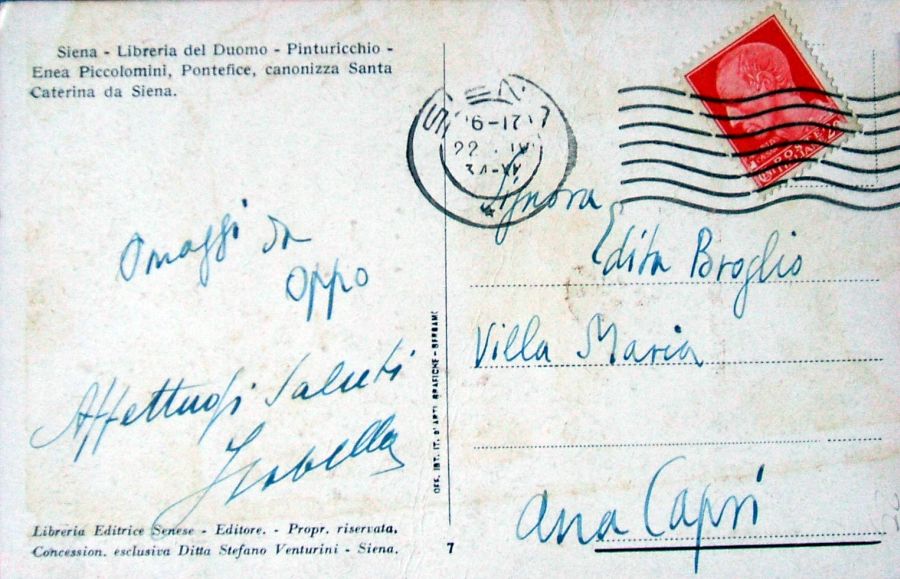 Siena - Libreria del Duomo - Pinturicchio -
Enea Piccolomini, Pontefice, canonizza Santa
Caterina da Siena.
16-17
22 . IV
34-XII
Omaggi da
Oppo
Affettuosi saluti
Isabella
Libreria Editrice Senese - Editore. - Propr. riservata.
Concession. esclusiva Ditta Stefano Venturini - Siena.
OFF. IST. IT. D'ARTI GRAFICHE - BERGAMO
7
Signora
Edita Broglio
Villa Maria
Ana Capri